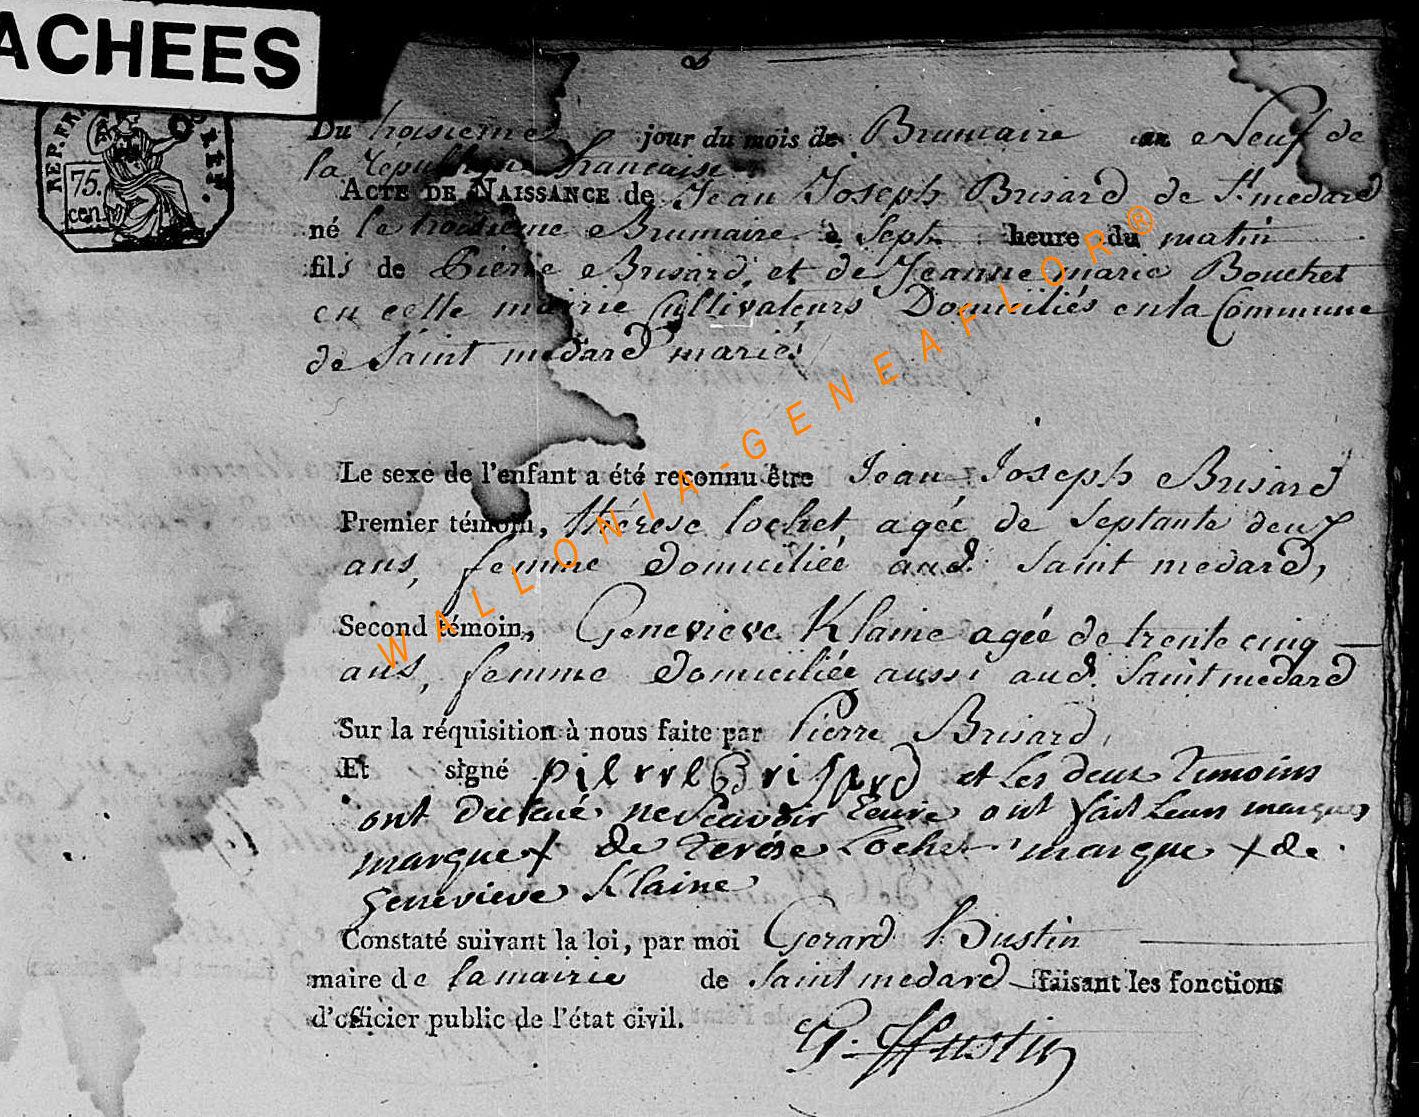 ACHEES
REP. FRA
75.
cen.
Du troisieme jour du mois de Brumaire an Neuf de
la République francaise
ACTE DE NAISSANCE de Jean Joseph Brisard de St. medard
né le troisieme Brumaire à Sept heure du matin
fils de Pierre Brisard, et de Jeanne marie Bouchet
en cette mairie Cultivateurs Domiciliés en la Commune
de Saint medard mariés
Le sexe de l'enfant a été reconnu être Jean Joseph Brisard
Premier témoin, thérese lochet agée de Septante deux
ans, femme domiciliée aud. Saint medard,
Second témoin, Genevieve Klaine agée de trente cinq
ans, femme domiciliée aussi aud. Saint medard
Sur la réquisition à nous faite par Pierre Brisard,
Et signé pierre Brisard et les deux temoins
ont declaré ne scavoir Ecrire ont fait leurs marques
marque + de terése Lochet marque + de
genevieve Klaine
Constaté suivant la loi, par moi Gerard hustin
maire de la mairie de Saint medard faisant les fonctions
d'officier public de l'état civil.
G. Hustin
WALLONIA-GENEAFLOR®